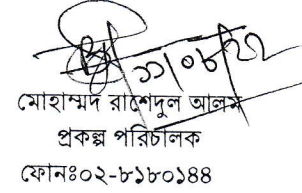 ১১/০৮/২২
মোহাম্মদ রাশেদুল আলম
প্রকল্প পরিচালক
ফোনঃ০২-৮১৮০১৪৪